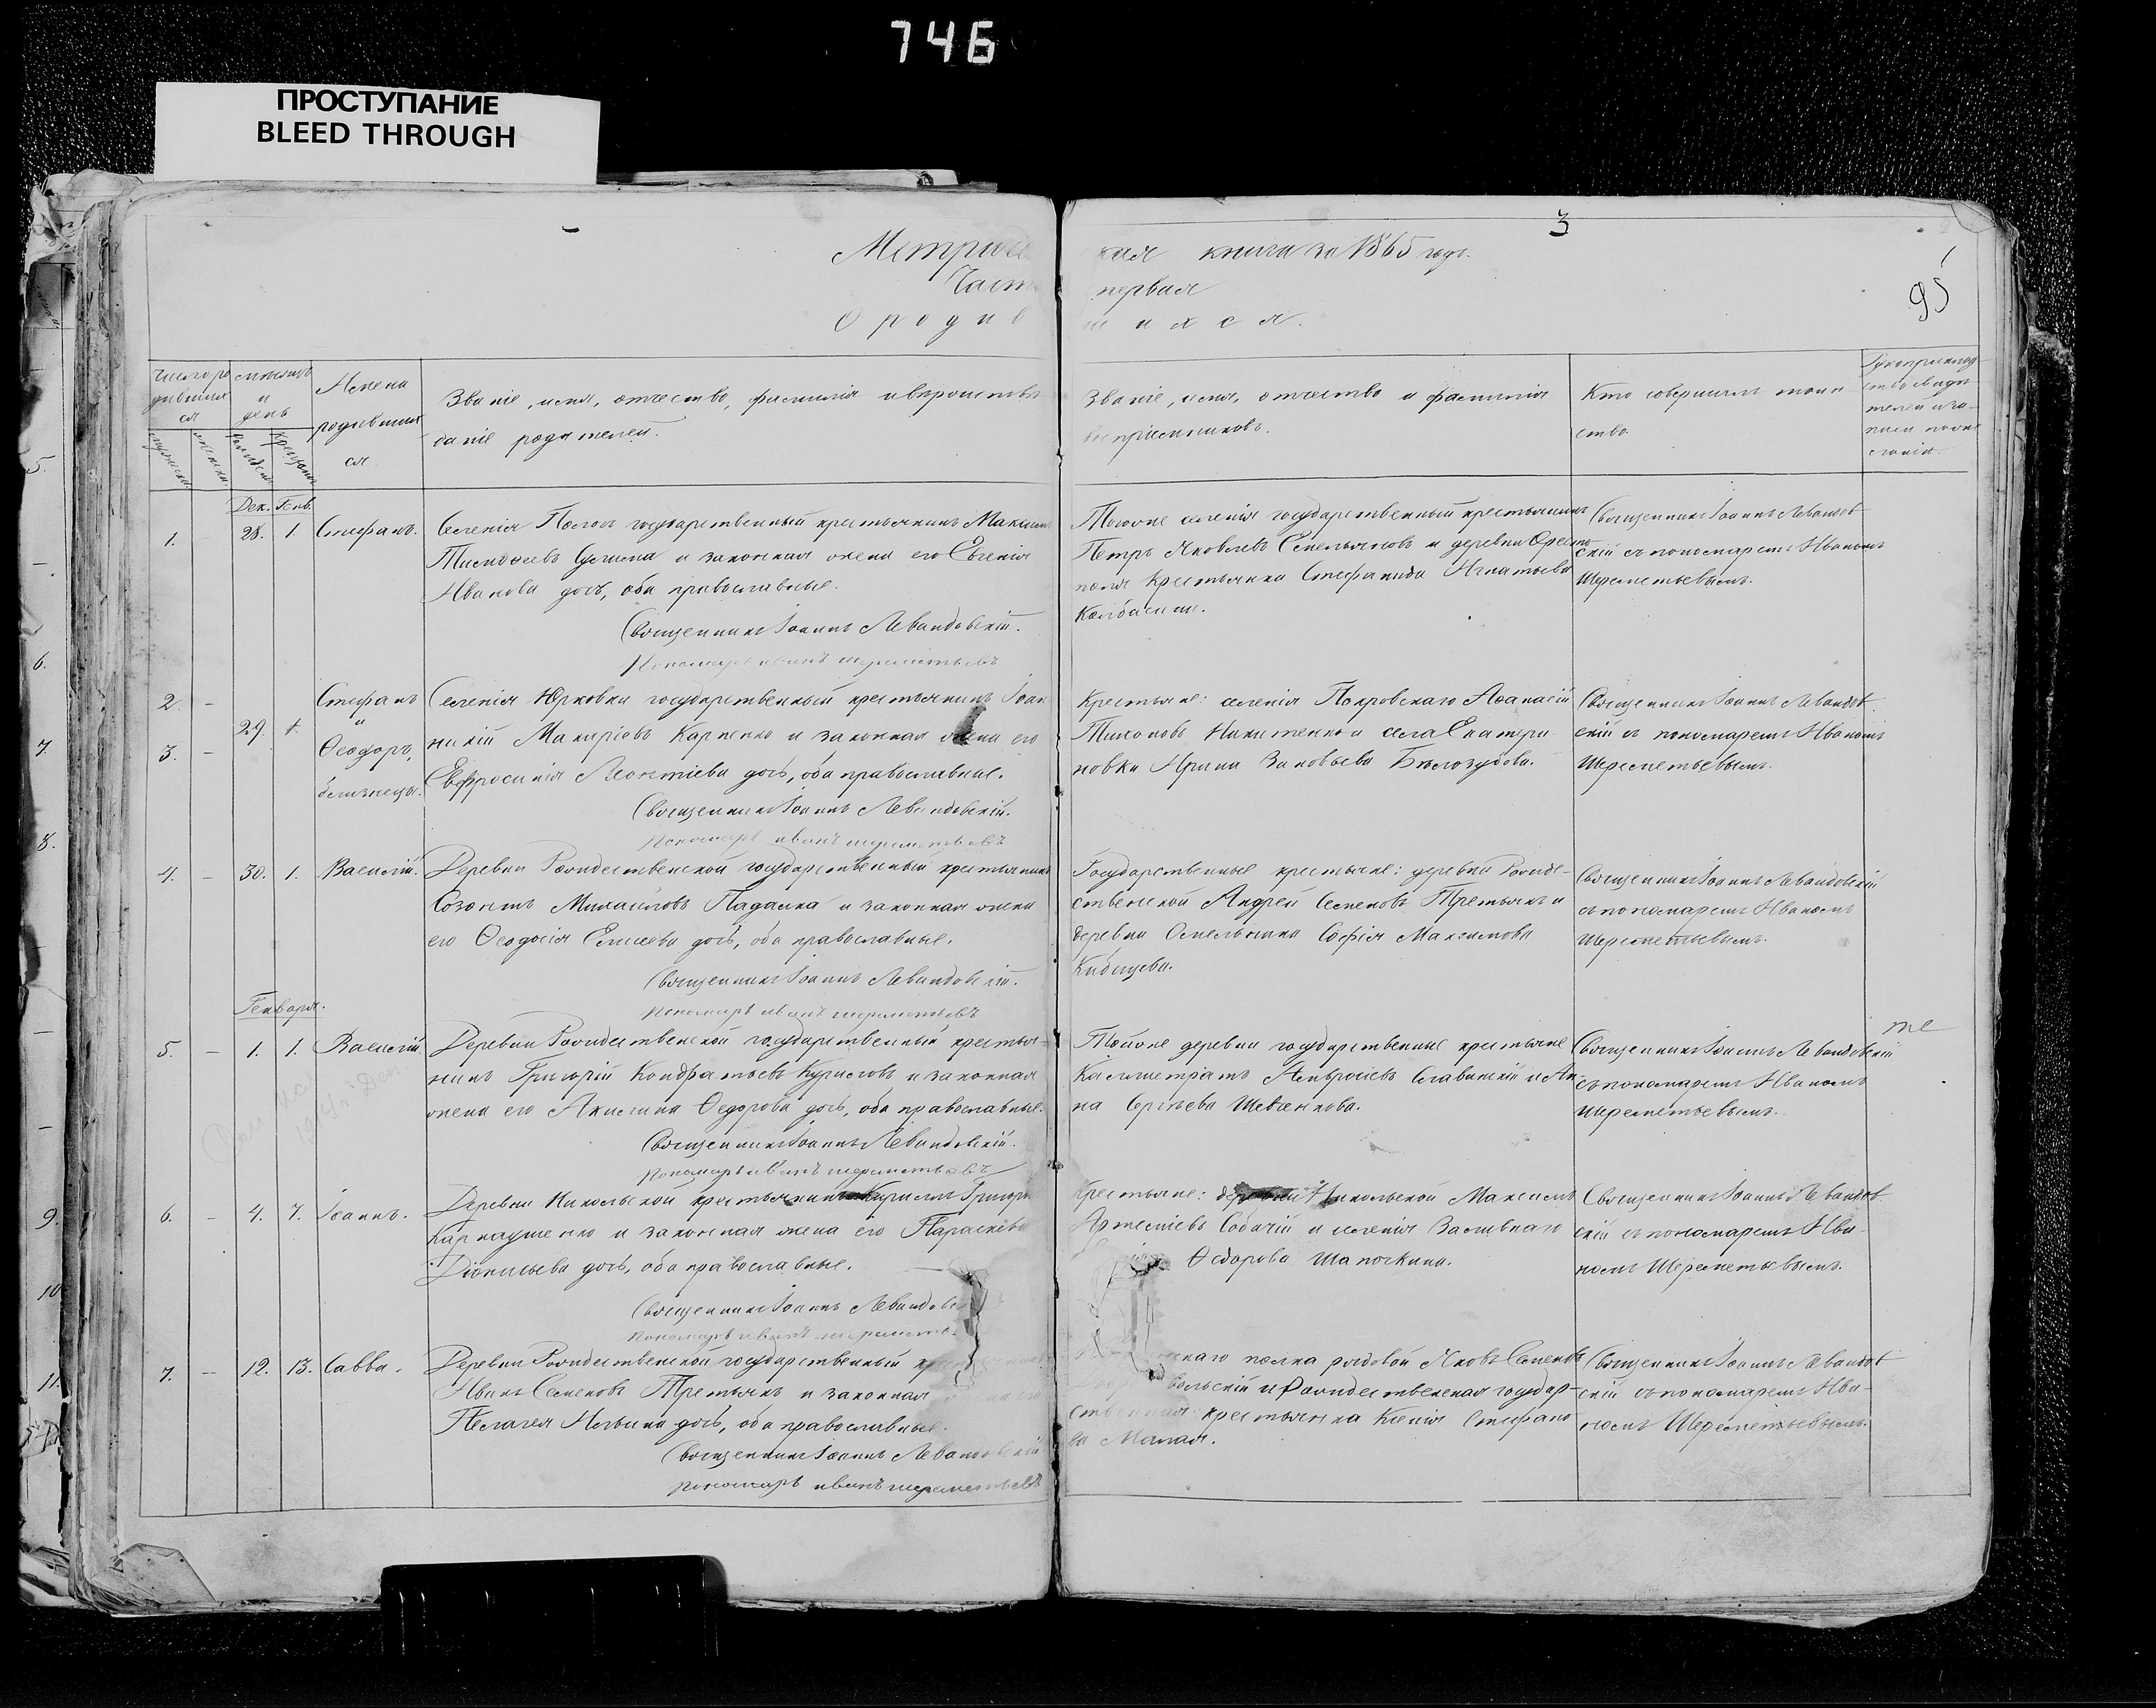 746
ПРОСТУПАНИЕ
BLEED THROUGH
3
95
Метриче ская книга за 1865 годъ.
Часть первая
О родив ш и х с я.
Число ро
дивших
ся
мѣсяцъ
и
день
Имена
родивших
ся
Званіе, имя, отчество, фамилія и вѣроисповѣ
даніе родителей.
Званіе, имя, отчество и фамилія
воспріемниковъ.
Кто совершалъ таин
ство
Рукоприклад
ство свидѣ
телей
Дек. Генв.
1. – 28. 1. Стефанъ.
Селенія Пологъ государственный крестьянинъ Максимъ
и законная жена его Евгенія
Иванова дочь, оба православные.
Священникъ Іоаннъ Левандовскій.
Пономарь иванъ шереметьевъ
Тогоже селенія государственный крестьянинъ
Петръ Яковлевъ Емельяновъ и деревни Орехо
поля крестьянка Стефанида Игнатьева
Священникъ Іоаннъ Левандов
скій съ пономаремъ Иваномъ
Шереметьевымъ.
2. –
3. –
29. 1.
Стефанъ
"
Ѳеодоръ,
близнецы.
Селенія Юрковки государственный крестьянинъ Іоан
никій Макаріевъ Карпенко и законная жена его
Евфросинія Леонтіева дочь, оба православные.
Священникъ Іоаннъ Левандовскій.
Пономарь иванъ шереметьевъ
Крестьяне: селенія Покровскаго Аѳанасій
Тихоновъ Никитенко и села Екатери
новки Ирина Зиновьева Бѣлозубова.
Священникъ Іоаннъ Левандов
скій съ пономаремъ Иваномъ
Шереметьевымъ.
4. – 30. 1. Василій.
Деревни Рождественской государственный крестьянинъ
Созонтъ Михаиловъ Падалка и законная жена
его Ѳеодосія Елисеева дочь, оба православные.
Священникъ Іоаннъ Левандовскій.
Пономарь иванъ шереметьевъ
Государственные крестьяне: деревни Рожде-
ственской Андрей Семеновъ Третьякъ и
деревни Омельника Софія Максимова
Священникъ Іоаннъ Левандовскій
съ пономаремъ Иваномъ
Шереметьевымъ.
Генваря.
5. – 1. 1. Василій.
Деревни Рождественской государственный крестья-
нинъ Григорій Кондратьевъ Куриловъ и законная
жена его Акилина Ѳедорова дочь, оба православные.
Священникъ Іоаннъ Левандовскій.
Пономарь иванъ шереметьевъ
Тойже деревни государственные крестьяне
Каллистратъ Амвросіевъ Славинскій и Ан-
на Сергѣева Шевченкова.
Священникъ Іоаннъ Левандовскій
съ пономаремъ Иваномъ
Шереметьевымъ.
6. – 4. 7. Іоаннъ.
Деревни Никольской крестьянинъ Кириллъ Григорь
Карнаушенко и законная жена его Параскева
Діонисьева дочь, оба православные.
Священникъ Іоаннъ Левандовс
Пономарь иванъ шереметь
Крестьяне: деревни Никольской Максимъ
Артеміевъ Собачій и селенія Заливнаго
Ѳедорова Шапочкина.
Священникъ Іоаннъ Левандов
скій съ пономаремъ Ива-
номъ Шереметьевымъ.
7. – 12. 13. Савва.
Деревни Рождественской государственный
Иванъ Семеновъ Третьякъ и законная
Пелагея Ильина дочь, оба православные.
Священникъ Іоаннъ Левандовскій
Пономарь иванъ шереметьевъ
скаго полка рядовой Яковъ Семеновъ
вольскій и Рождественская государ-
ственная крестьянка Ксенія Стефано
ва Малая.
Священникъ Іоаннъ Левандов
скій съ пономаремъ Ива-
номъ Шереметьевымъ.